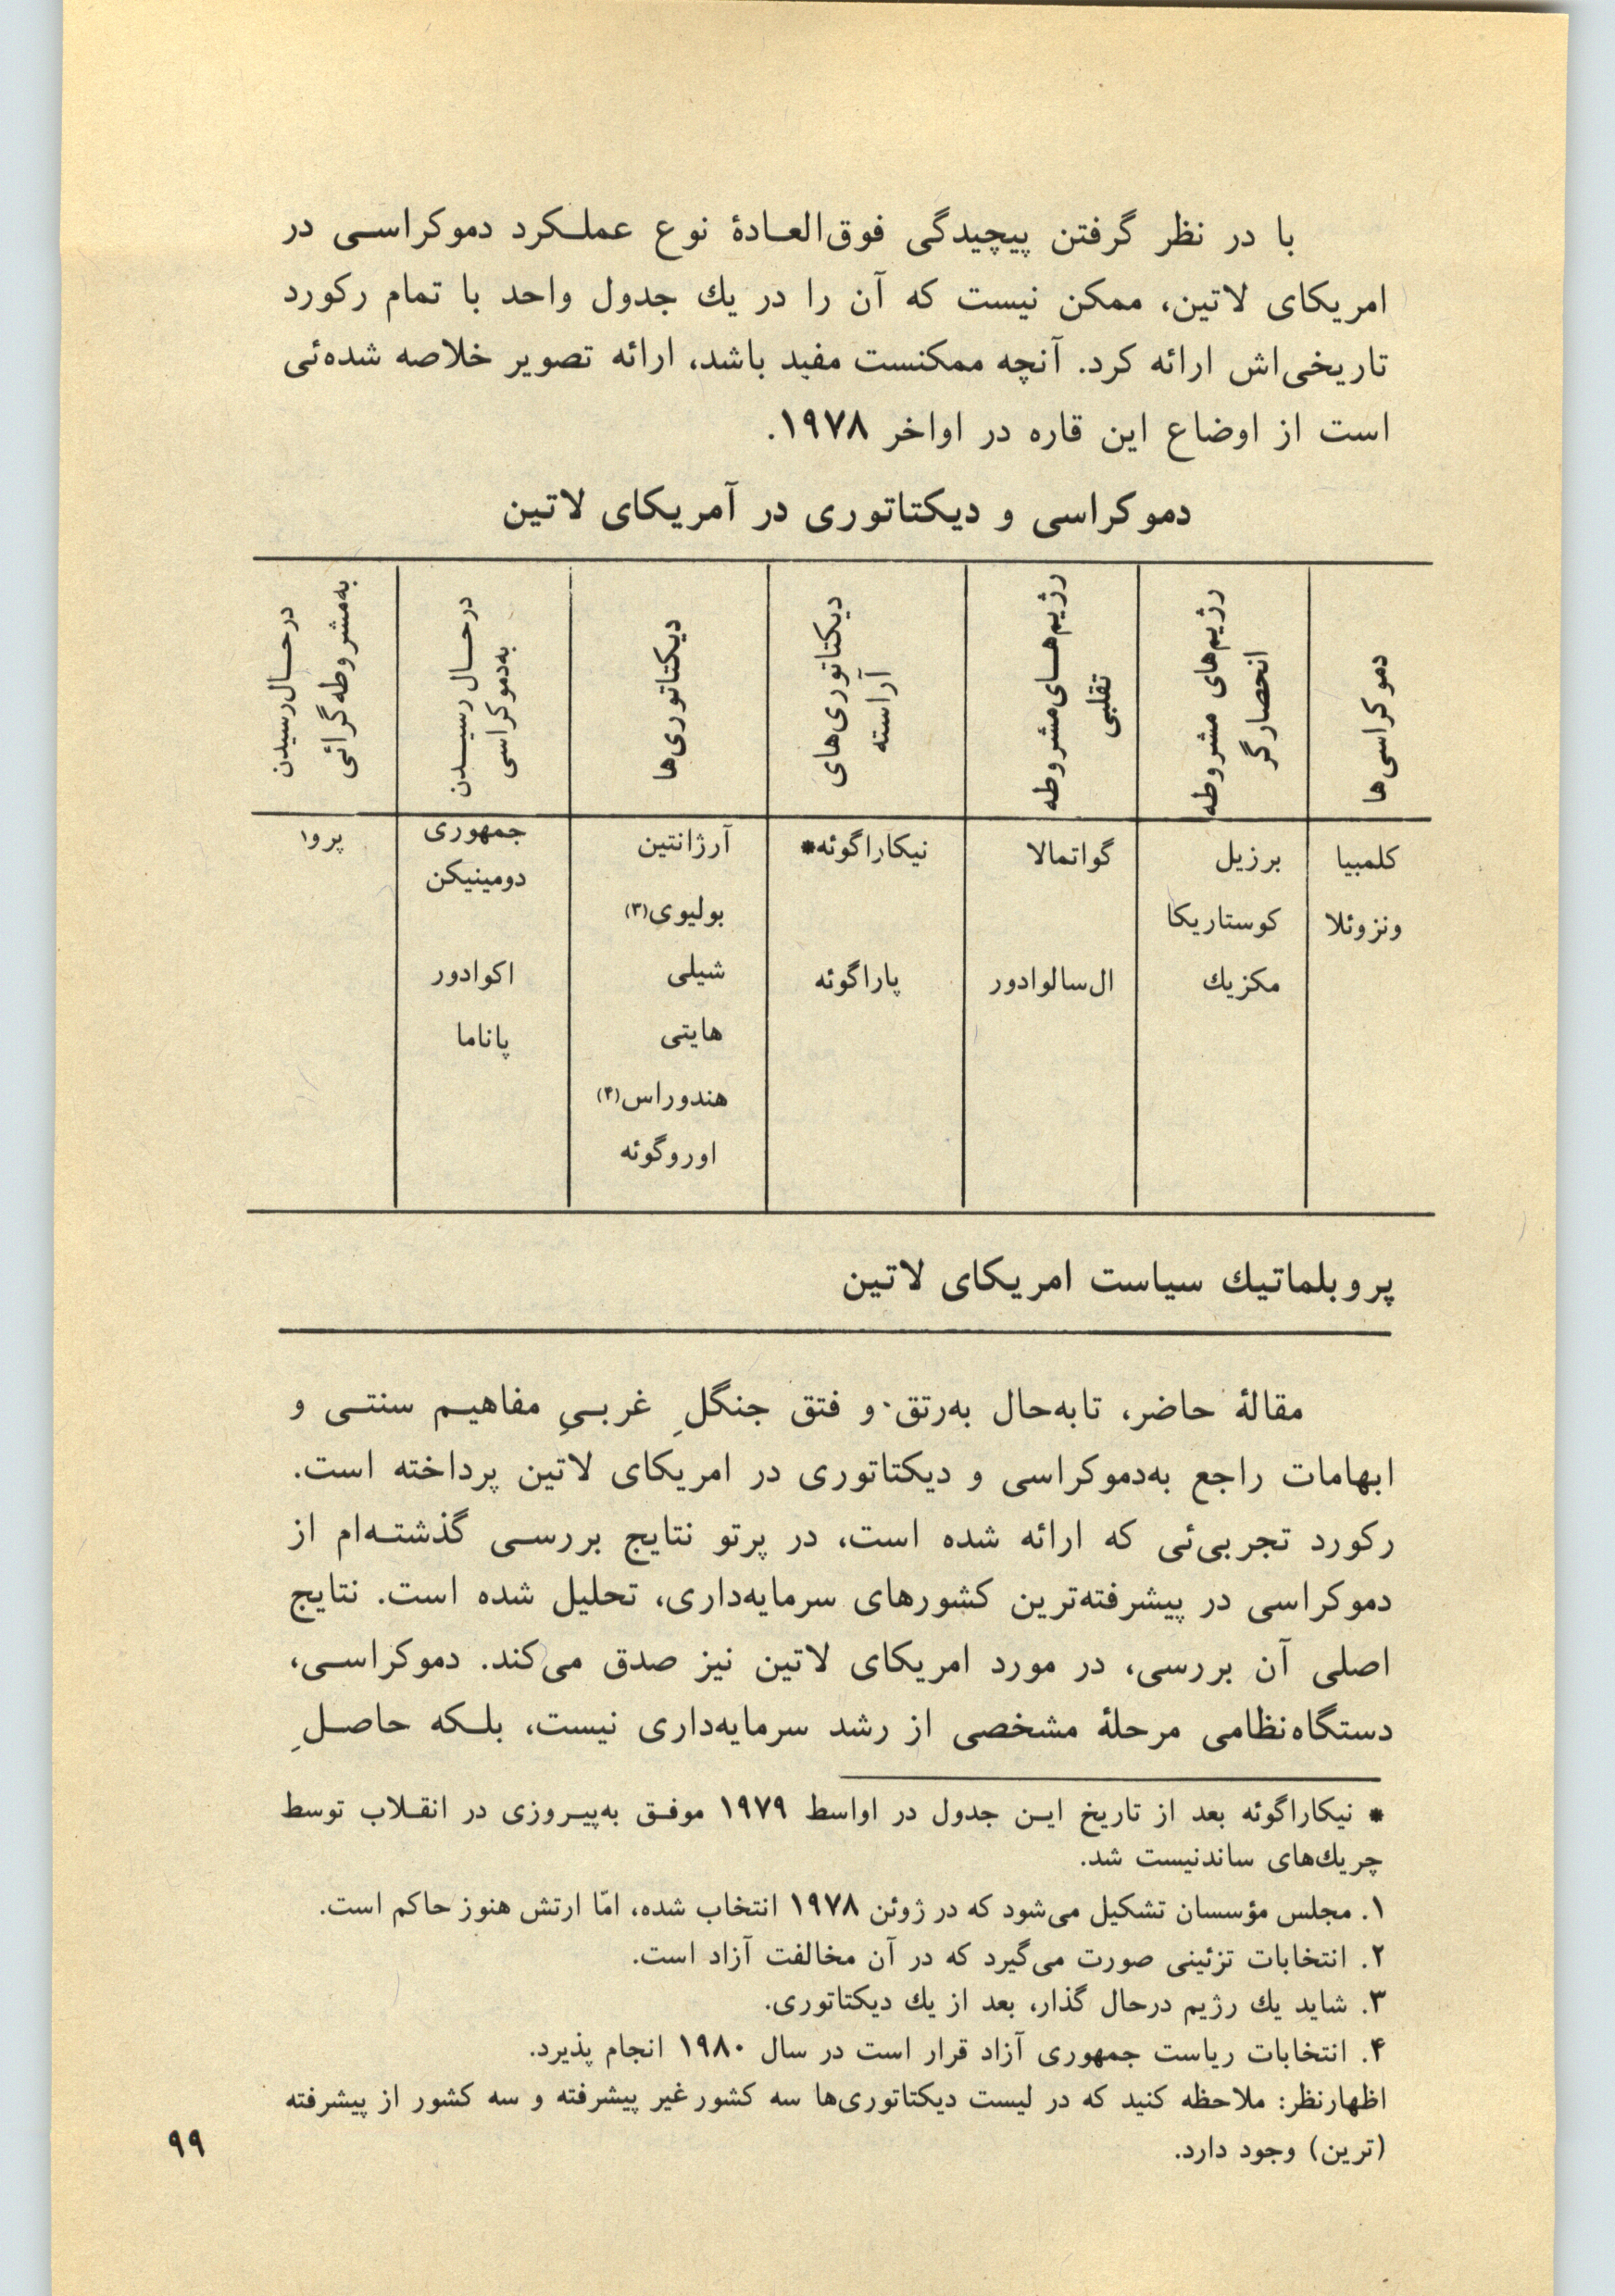 با در نظر گرفتن پیچیدگی فوق‌العادهٔ نوع عملکرد دموکراسی در
امریکای لاتین، ممکن نیست که آن را در یك جدول واحد با تمام رکورد
تاریخی‌اش ارائه کرد. آنچه ممکنست مفید باشد، ارائه تصویر خلاصه شده‌ئی
است از اوضاع این قاره در اواخر ۱۹۷۸.
دموکراسی و دیکتاتوری در آمریکای لاتین
دموکراسی‌ها
رژیم‌های مشروطه
انحصارگر
رژیم‌های مشروطه
تقلبی
دیکتاتوری‌های
آراسته
دیکتاتوری‌ها
درحال رسیدن
به‌دموکراسی
درحال رسیدن
به‌مشروطه گرائی
کلمبیا
ونزوئلا
برزیل
کوستاریکا
مکزیك
گواتمالا
ال‌سالوادور
نیکاراگوئه*
پاراگوئه
آرژانتین
بولیوی(۳)
شیلی
هایتی
هندوراس(۴)
اوروگوئه
جمهوری
دومینیکن
اکوادور
پاناما
پرو۱
پروبلماتیك سیاست امریکای لاتین
مقالهٔ حاضر، تابه‌حال به‌رتق و فتق جنگلِ غربیِ مفاهیم سنتی و
ابهامات راجع به‌دموکراسی و دیکتاتوری در امریکای لاتین پرداخته است.
رکورد تجربی‌ئی که ارائه شده است، در پرتو نتایج بررسی گذشته‌ام از
دموکراسی در پیشرفته‌ترین کشورهای سرمایه‌داری، تحلیل شده است. نتایج
اصلی آن بررسی، در مورد امریکای لاتین نیز صدق می‌کند. دموکراسی،
دستگاه‌نظامی مرحلهٔ مشخصی از رشد سرمایه‌داری نیست، بلکه حاصلِ
* نیکاراگوئه بعد از تاریخ این جدول در اواسط ۱۹۷۹ موفق به‌پیروزی در انقلاب توسط
چریك‌های ساندنیست شد.
۱. مجلس مؤسسان تشکیل می‌شود که در ژوئن ۱۹۷۸ انتخاب شده، امّا ارتش هنوز حاکم است.
۲. انتخابات تزئینی صورت می‌گیرد که در آن مخالفت آزاد است.
۳. شاید یك رژیم درحال گذار، بعد از یك دیکتاتوری.
۴. انتخابات ریاست جمهوری آزاد قرار است در سال ۱۹۸۰ انجام پذیرد.
اظهارنظر: ملاحظه کنید که در لیست دیکتاتوری‌ها سه کشور غیر پیشرفته و سه کشور از پیشرفته
(ترین) وجود دارد.
۹۹